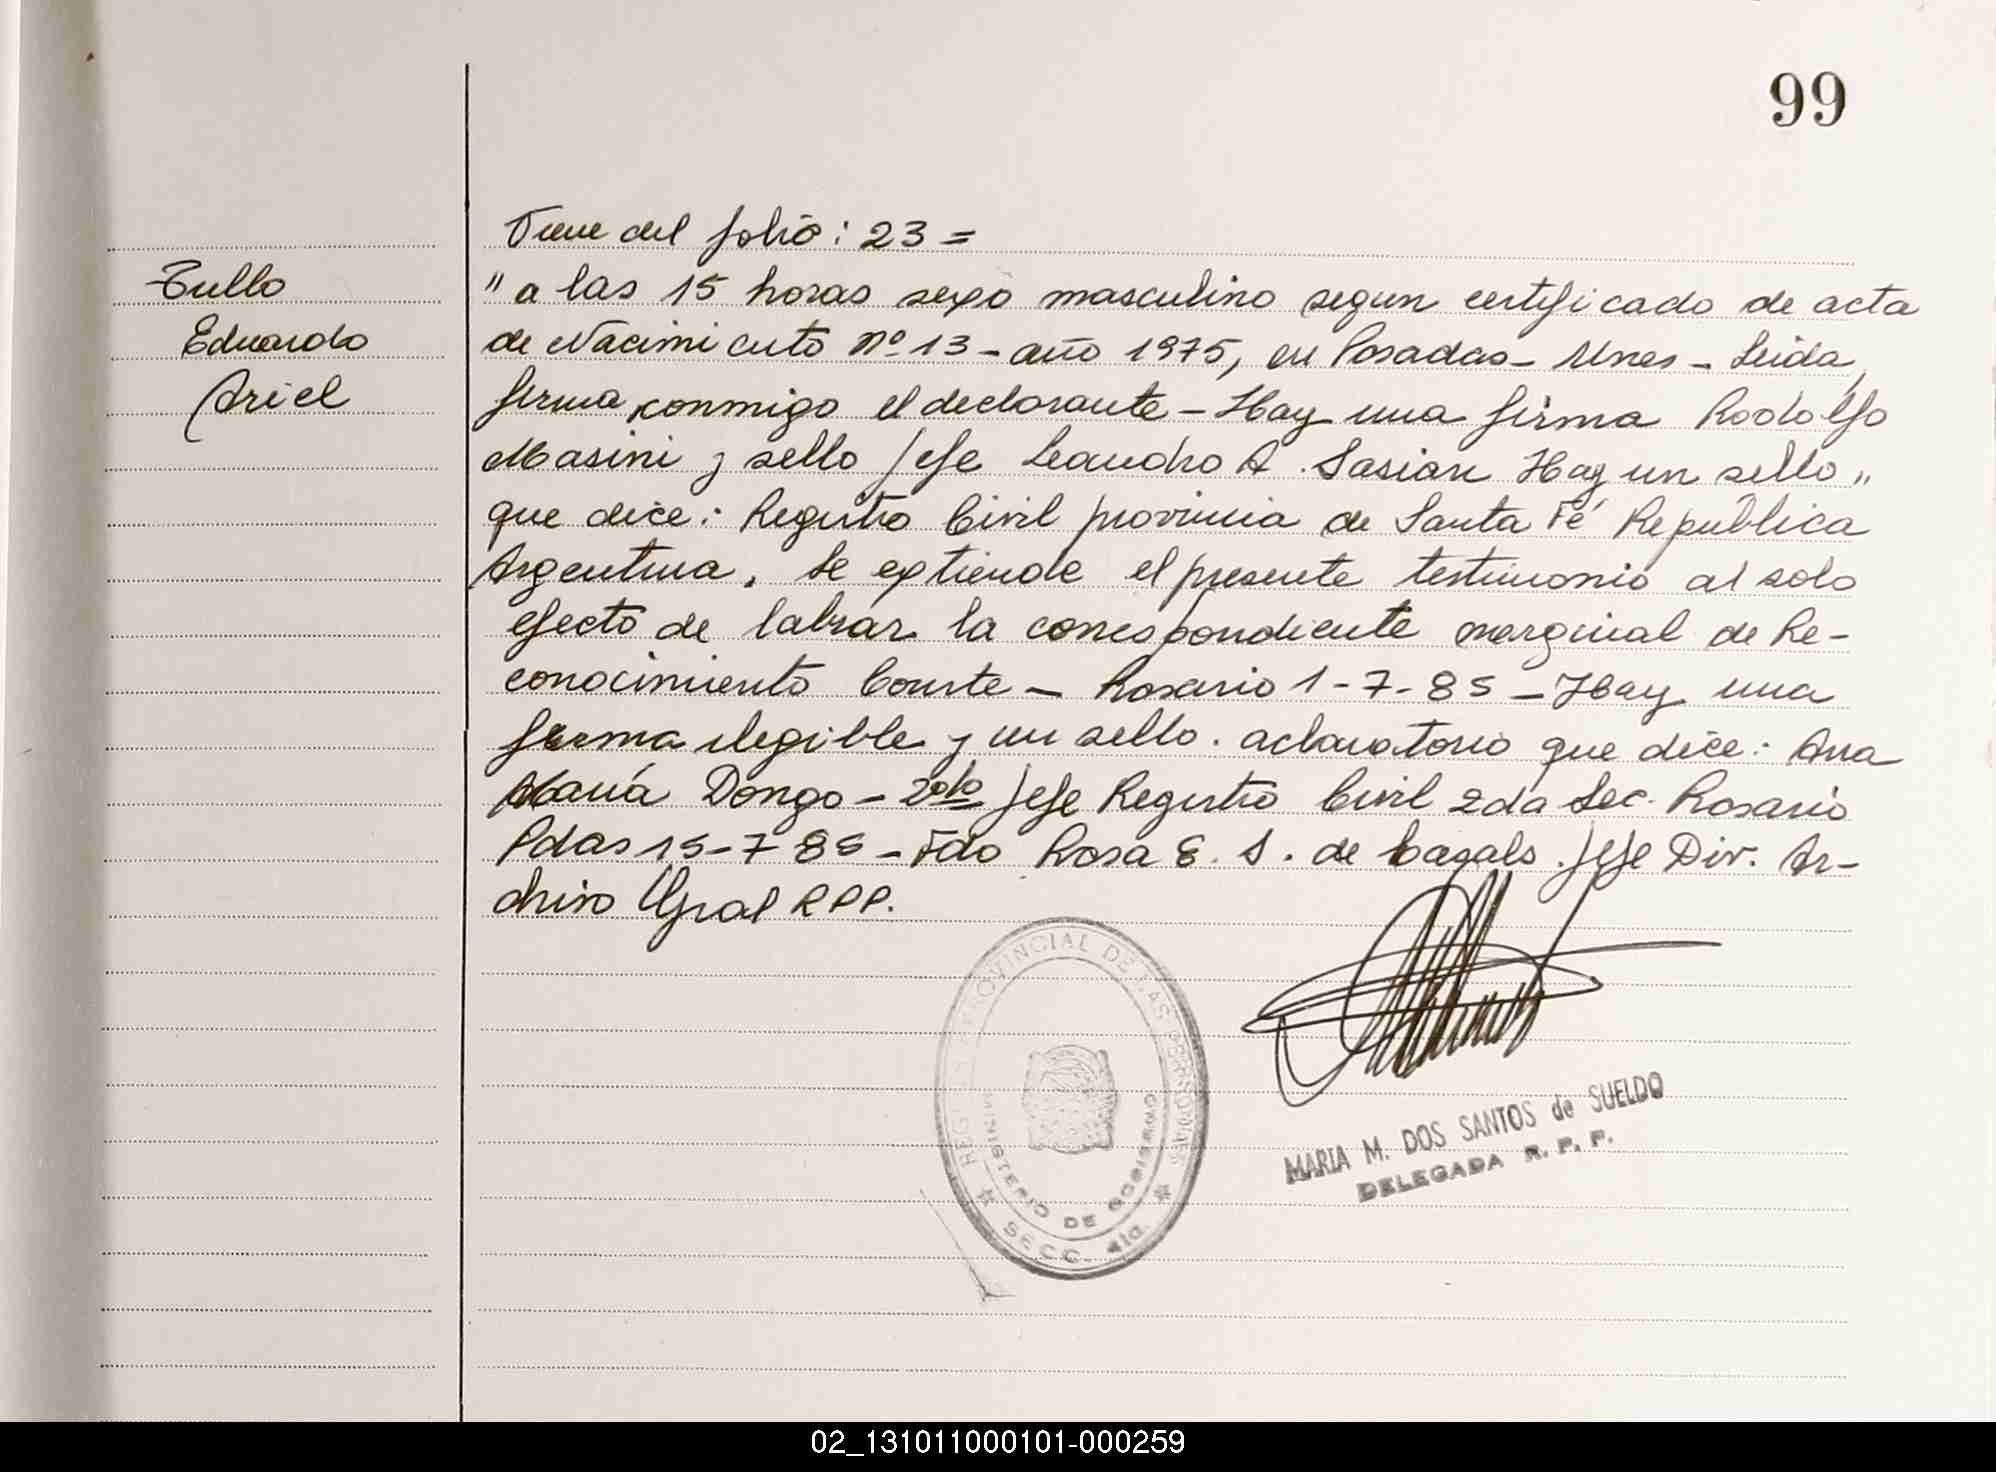 99
Viene del folio: 23 =
Tullo
Eduardo
Ariel
" a las 15 horas sexo masculino segun certificado de acta
de Nacimiento nº 13 - año 1975, en Posadas - Mnes - Leida,
firma conmigo el declarante - Hay una firma Rodolfo
Masini y sello Jefe Leandro A. Sasian Hay un sello "
que dice: Registro Civil provincia de Santa Fé República
Argentina. Se extiende el presente testimonio al solo
efecto de labrar la correspondiente marginal de Re-
conocimiento Conste - Rosario 1-7-85 - Hay una
firma ilegible y un sello. aclaratorio que dice: Ana
María Dongo - Jefe Registro Civil 2da Sec. Rosario
Pdas 15-7-85 - Fdo Rosa E. S. de Cazals. Jefe Div. Ar-
chivo Gral RPP.
REGISTRO PROVINCIAL DE LAS PERSONAS
MINISTERIO DE GOBIERNO
SECC. 4ta.
MARIA M. DOS SANTOS de SUELDO
DELEGADA R. P. P.
02_131011000101-000259